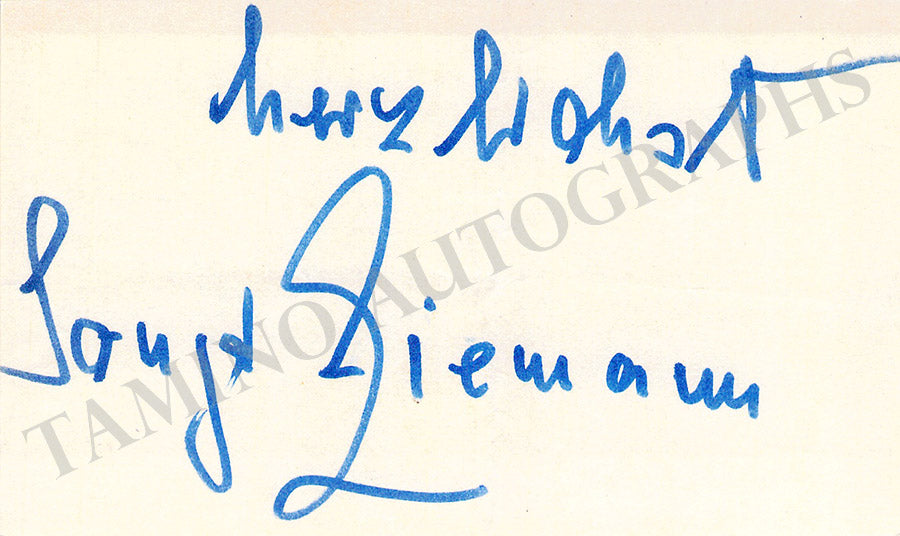 herzlichst
Sonja Ziemann
TAMINO AUTOGRAPHS